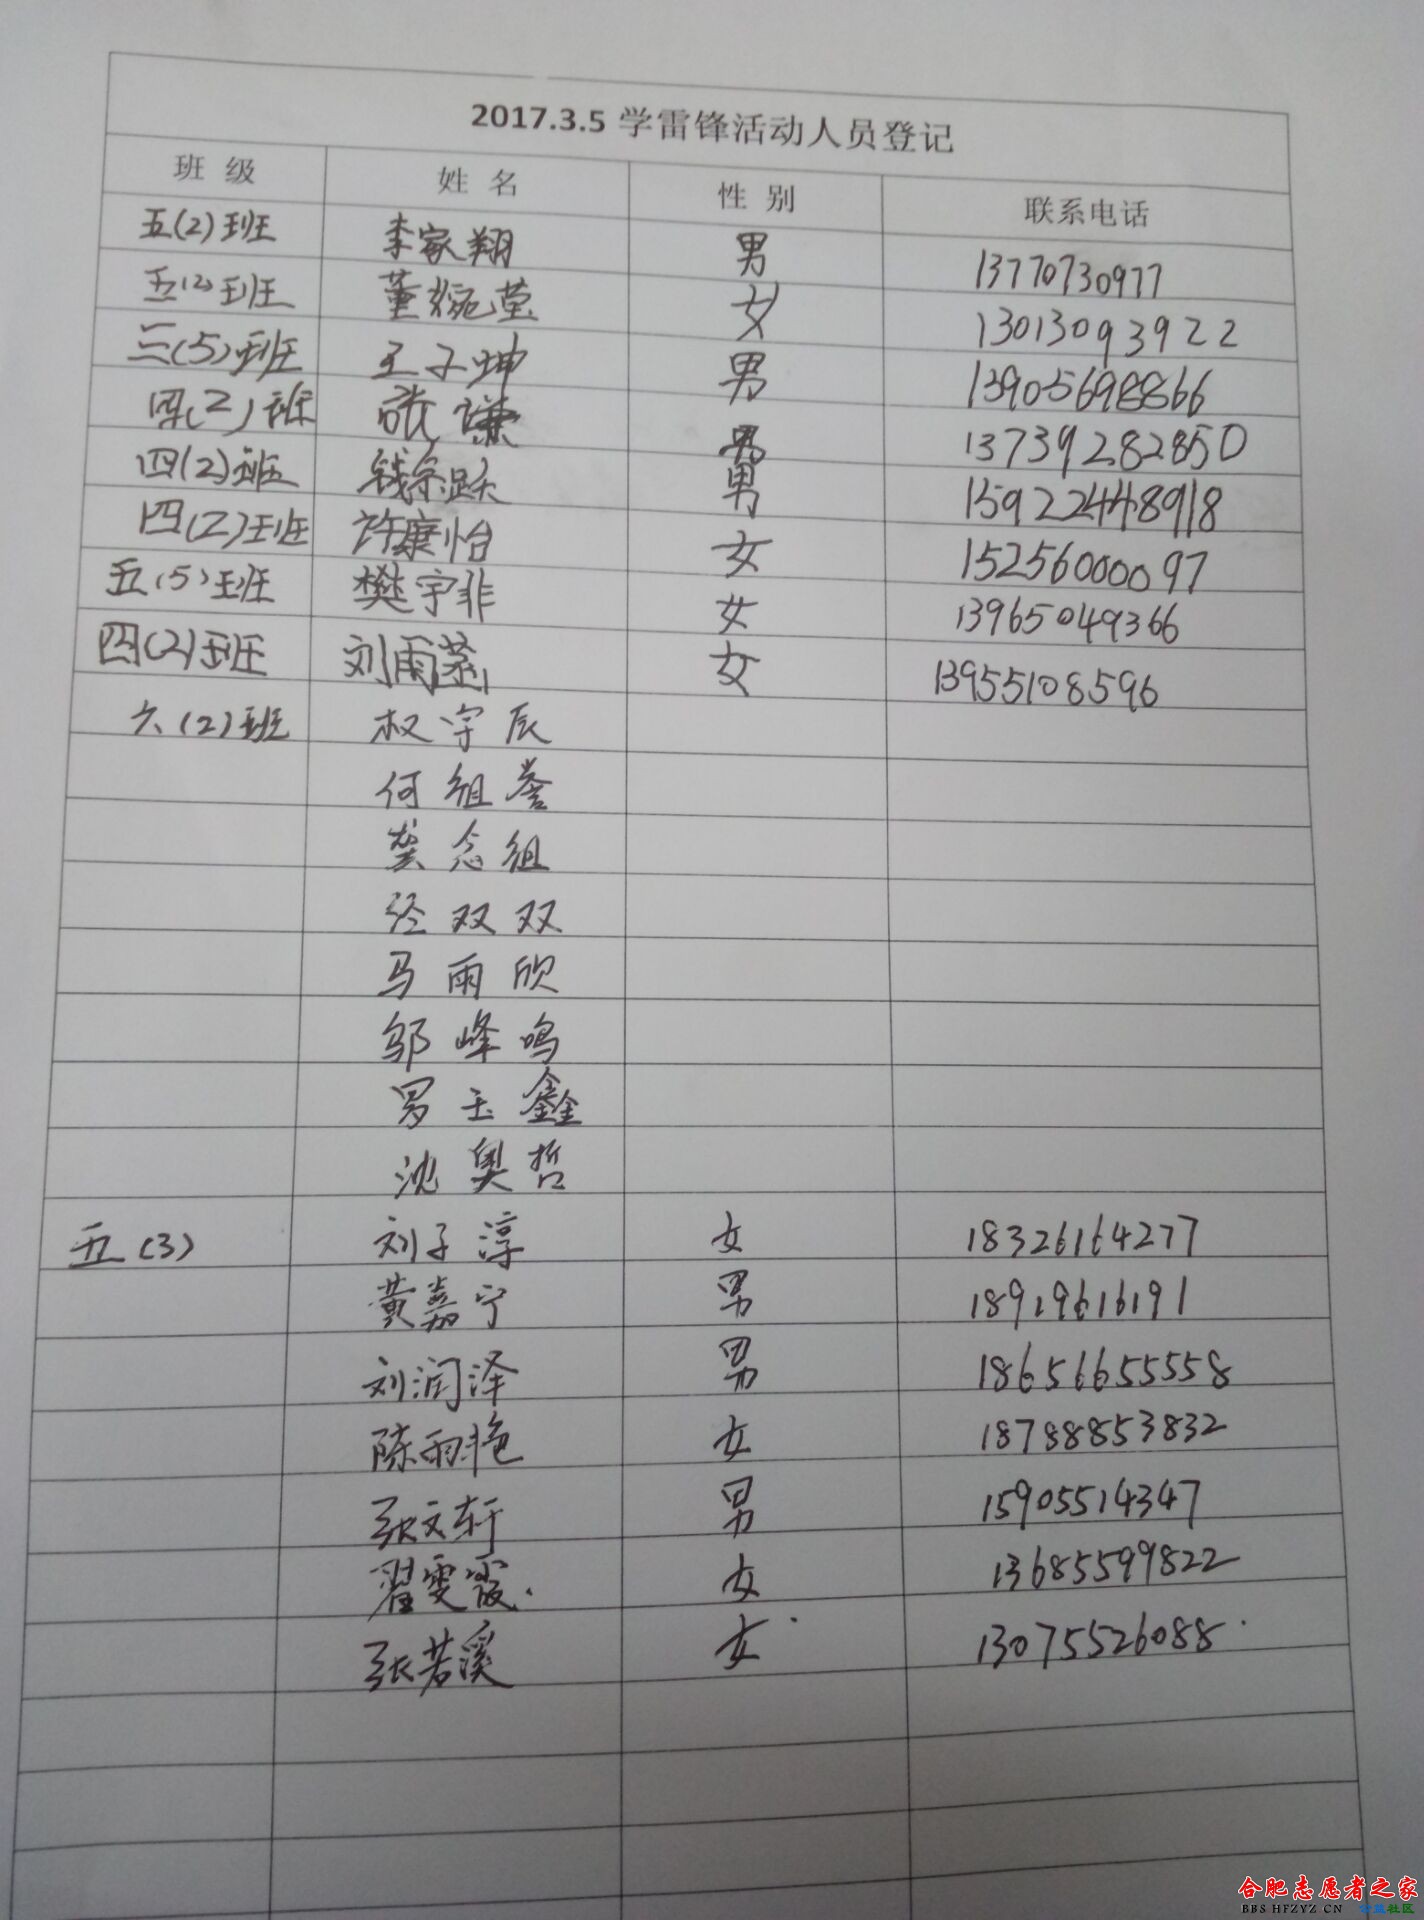 2017.3.5 学雷锋活动人员登记
班 级 姓 名 性 别 联系电话
五(2)班 李家翔 男 13770730977
五(2)班 董婉莹 女 13013093922
三(5)班 王子坤 男 13905698866
四(2)班 张谦 男 13739282850
四(2)班 钱宗跃 男 15922448918
四(2)班 许康怡 女 15256000097
五(5)班 樊宇非 女 13965049366
四(2)班 刘雨菡 女 13955108596
六(2)班 权宇辰
何组誉
龚念组
径双双
马雨欣
邬峰鸣
罗玉鑫
沈奥哲
五(3) 刘子淳 女 18326164277
黄嘉宁 男 18919616191
刘润泽 男 18656655558
陈雨艳 女 18788853832
张文轩 男 15905514347
翟雯霞 女 13685599822
张若溪 女 13075526088
合肥志愿者之家
BBS HFZYZ CN 公益社区